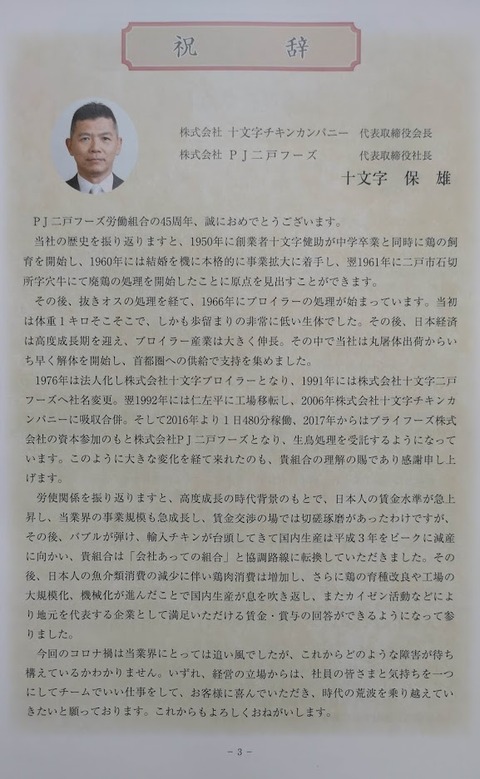 祝辞
株式会社 十文字チキンカンパニー 代表取締役会長
株式会社 ＰＪ二戸フーズ 代表取締役社長
十文字 保 雄
ＰＪ二戸フーズ労働組合の45周年、誠におめでとうございます。
当社の歴史を振り返りますと、1950年に創業者十文字健助が中学卒業と同時に鶏の飼
育を開始し、1960年には結婚を機に本格的に事業拡大に着手し、翌1961年に二戸市石切
所字穴牛にて廃鶏の処理を開始したことに原点を見出すことができます。
その後、抜きオスの処理を経て、1966年にブロイラーの処理が始まっています。当初
は体重１キロそこそこで、しかも歩留まりの非常に低い生体でした。その後、日本経済
は高度成長期を迎え、ブロイラー産業は大きく伸長。その中で当社は丸屠体出荷からい
ち早く解体を開始し、首都圏への供給で支持を集めました。
1976年は法人化し株式会社十文字ブロイラーとなり、1991年には株式会社十文字二戸
フーズへ社名変更。翌1992年には仁左平に工場移転し、2006年株式会社十文字チキンカ
ンパニーに吸収合併。そして2016年より１日480分稼働、2017年からはプライフーズ株式
会社の資本参加のもと株式会社ＰＪ二戸フーズとなり、生鳥処理を受託するようになって
います。このように大きな変化を経て来れたのも、貴組合の理解の賜であり感謝申し上
げます。
労使関係を振り返りますと、高度成長の時代背景のもとで、日本人の賃金水準が急上
昇し、当業界の事業規模も急成長し、賃金交渉の場では切磋琢磨があったわけですが、
その後、バブルが弾け、輸入チキンが台頭してきて国内生産は平成３年をピークに減産
に向かい、貴組合は「会社あっての組合」と協調路線に転換していただきました。その
後、日本人の魚介類消費の減少に伴い鶏肉消費は増加し、さらに鶏の育種改良や工場の
大規模化、機械化が進んだことで国内生産が息を吹き返し、またカイゼン活動などによ
り地元を代表する企業として満足いただける賃金・賞与の回答ができるようになって参
りました。
今回のコロナ禍は当業界にとっては追い風でしたが、これからどのような障害が待ち
構えているかわかりません。いずれ、経営の立場からは、社員の皆さまと気持ちを一つ
にしてチームでいい仕事をして、お客様に喜んでいただき、時代の荒波を乗り越えてい
きたいと願っております。これからもよろしくおねがいします。
－３－